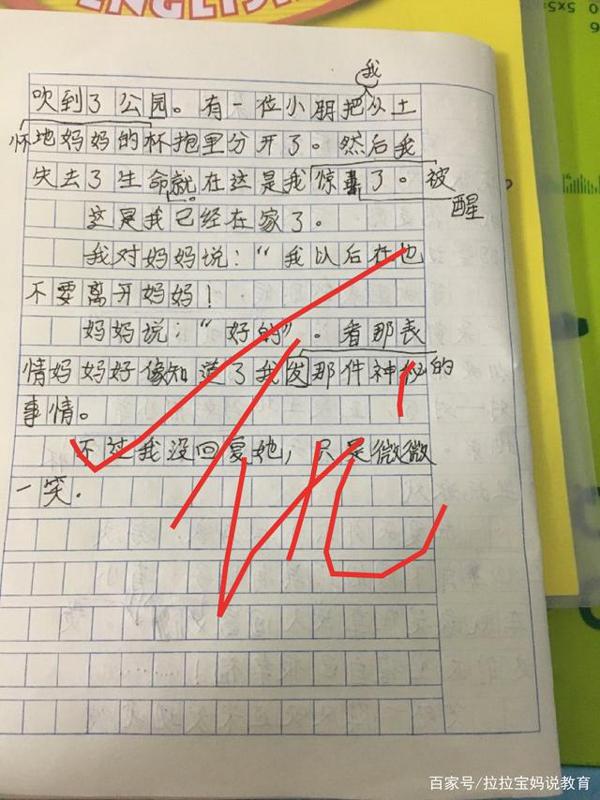 ENGLISH
我
吹到了公园。有一位小朋把从土
怀地妈妈的杯抱里分开了。然后我
失去了生命就在这是我惊了。被
醒
这是我已经在家了。
我对妈妈说：“我以后在也
不要离开妈妈！
妈妈说：“好的”。看那表
情妈妈好像知道了我发那件神秘的
事情。
不过我没回复她，只是微微
一笑.
优
百家号/拉拉宝妈说教育